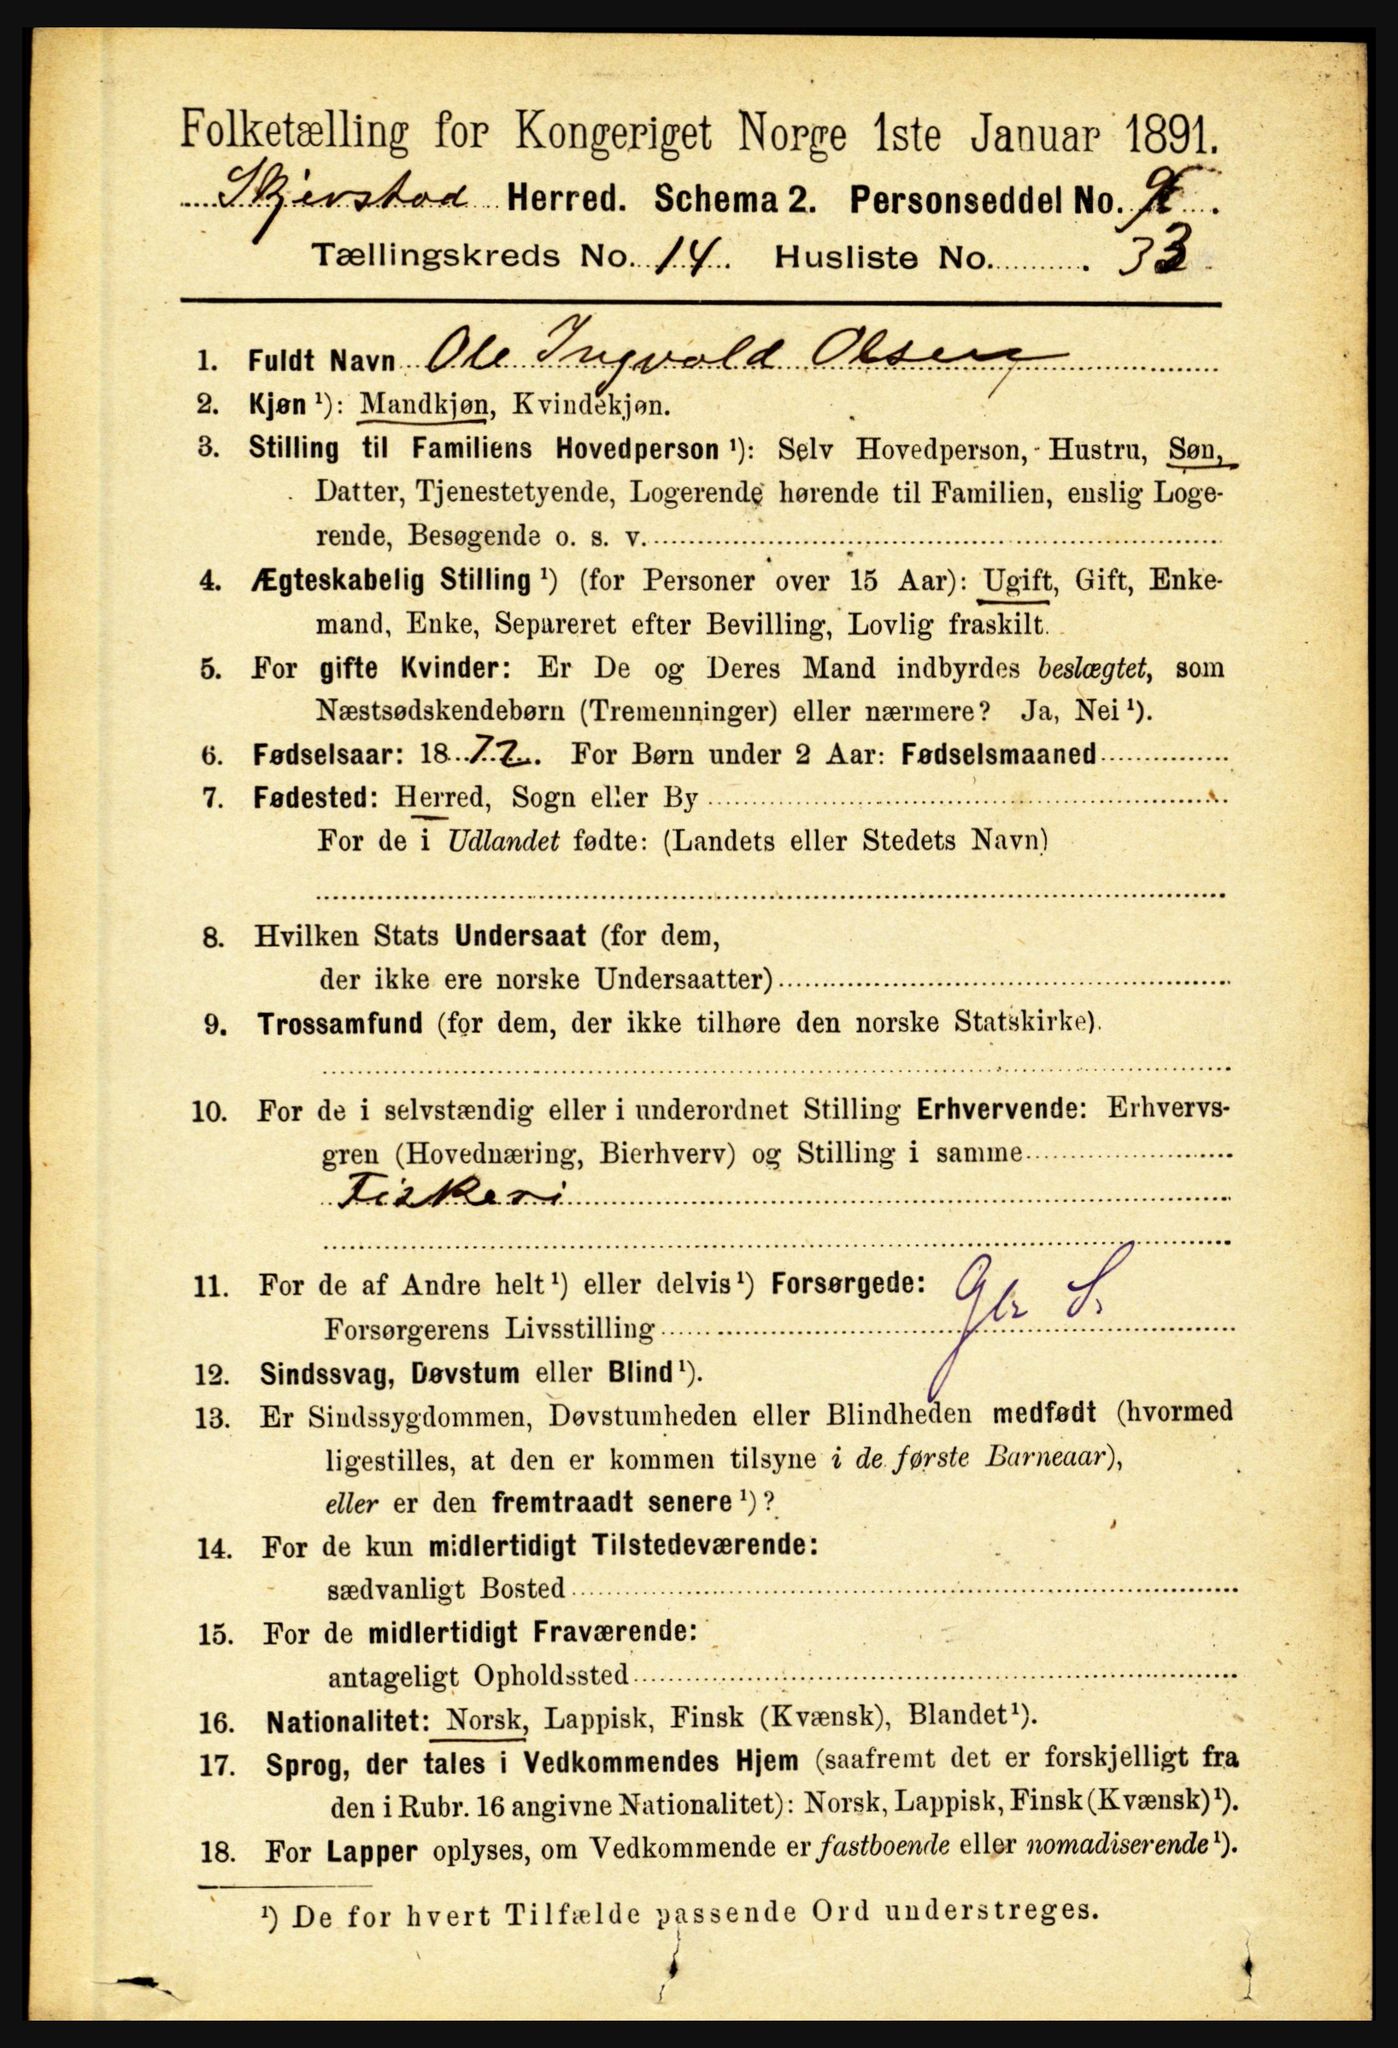 Folketælling for Kongeriget Norge 1ste Januar 1891.
Skjerstad Herred. Schema 2. Personseddel No.
Tællingskreds No. 14. Husliste No. 33
1. Fuldt Navn Ole Ingvold Olsen
2. Kjøn ¹): Mandkjøn, Kvindekjøn.
3. Stilling til Familiens Hovedperson ¹): Selv Hovedperson, Hustru, Søn,
Datter, Tjenestetyende, Logerende hørende til Familien, enslig Loge-
rende, Besøgende o. s. v.
4. Ægteskabelig Stilling ¹) (for Personer over 15 Aar): Ugift, Gift, Enke-
mand, Enke, Separeret efter Bevilling, Lovlig fraskilt.
5. For gifte Kvinder: Er De og Deres Mand indbyrdes beslægtet, som
Næstsødskendebørn (Tremenninger) eller nærmere? Ja, Nei ¹).
6. Fødselsaar: 1872. For Børn under 2 Aar: Fødselsmaaned
7. Fødested: Herred, Sogn eller By
For de i Udlandet fødte: (Landets eller Stedets Navn)
8. Hvilken Stats Undersaat (for dem,
der ikke ere norske Undersaatter)
9. Trossamfund (for dem, der ikke tilhøre den norske Statskirke).
10. For de i selvstændig eller i underordnet Stilling Erhvervende: Erhvervs-
gren (Hovednæring, Bierhverv) og Stilling i samme
Fiskeri
11. For de af Andre helt ¹) eller delvis ¹) Forsørgede:
Forsørgerens Livsstilling
12. Sindssvag, Døvstum eller Blind ¹).
13. Er Sindssygdommen, Døvstumheden eller Blindheden medfødt (hvormed
ligestilles, at den er kommen tilsyne i de første Barneaar),
eller er den fremtraadt senere ¹)?
14. For de kun midlertidigt Tilstedeværende:
sædvanligt Bosted
15. For de midlertidigt Fraværende:
antageligt Opholdssted
16. Nationalitet: Norsk, Lappisk, Finsk (Kvænsk), Blandet ¹).
17. Sprog, der tales i Vedkommendes Hjem (saafremt det er forskjelligt fra
den i Rubr. 16 angivne Nationalitet): Norsk, Lappisk, Finsk (Kvænsk) ¹).
18. For Lapper oplyses, om Vedkommende er fastboende eller nomadiserende ¹).
¹) De for hvert Tilfælde passende Ord understreges.